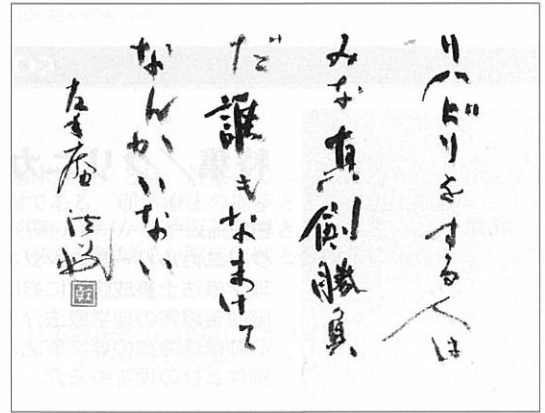 リハビリをする人は
みな真剣勝負
だ誰もなまけて
なんかいない